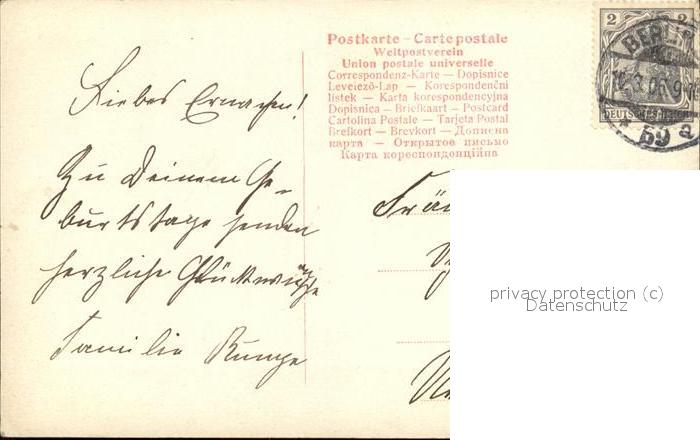 Postkarte – Carte postale
Weltpostverein
Union postale universelle
Correspondenz-Karte — Dopisnice
Levelező-Lap — Korespondenční
listek — Karta korespondencyjna
Dopisnica — Briefkaart — Postcard
Cartolina Postale — Tarjeta Postal
Brefkort — Brevkort — Дописна
карта — Открытое письмо
Карта кореспонденційна
2 2
BERLIN
59 a
Liebes
Zu Deinem Ge-
burtstage senden
herzliche Glückwünsche
Familie Runge
privacy protection (c)
Datenschutz